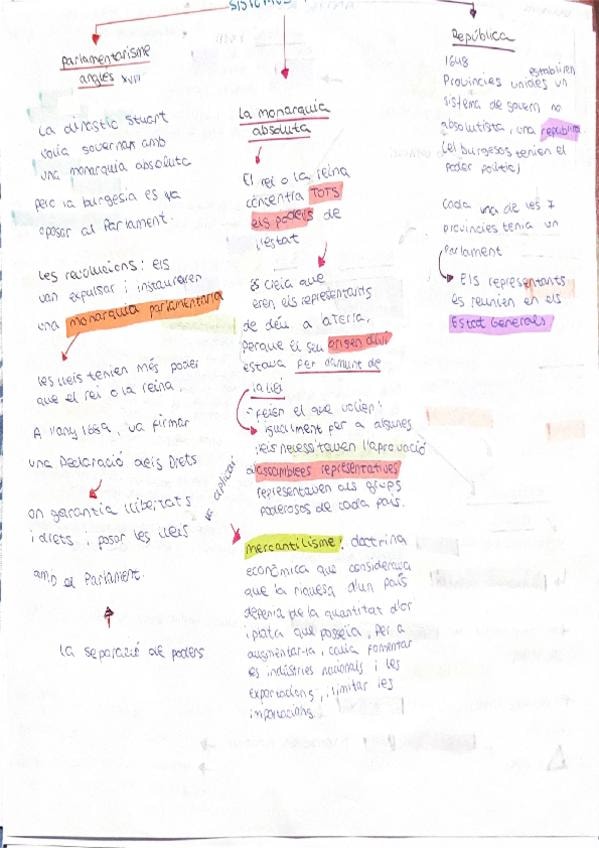 SISTEMES
Parlamentarisme
anglès XVII
La dinastia Stuart
volia governar amb
una monarquia absoluta
però la burgesia es va
oposar al Parlament.
Les revolucions: els
van expulsar i instauraren
una monarquia parlamentària
les lleis tenien més poder
que el rei o la reina.
A l'any 1689, va firmar
una Declaració dels Drets
on garantia llibertats
i drets i posar les lleis
amb el Parlament.
la separació de poders
La monarquia
absoluta
El rei o la reina
concentra TOTS
els poders de
l'estat
Es creia que
eren els representants
de déu a a terra,
perquè el seu origen diví
estava per damunt de
la llei
- feien el que volien;
igualment per a algunes
lleis necessitaven l'aprovació
d'assamblees representatives
representaven als grups
poderosos de cada país.
va aplicar
mercantilisme: doctrina
econòmica que considerava
que la riquesa d'un país
depenia de la quantitat d'or
i plata que posseïa, Per a
augmentar-la, calia fomentar
les indústries nacionals i les
exportacions, i limitar les
importacions.
República
1648
establiren
Províncies unides un
sistema de govern no
absolutista, una república
(el burgesos tenien el
poder polític)
Cada una de les 7
províncies tenia un
Parlament
Els representants
es reunien en els
Estat Generals